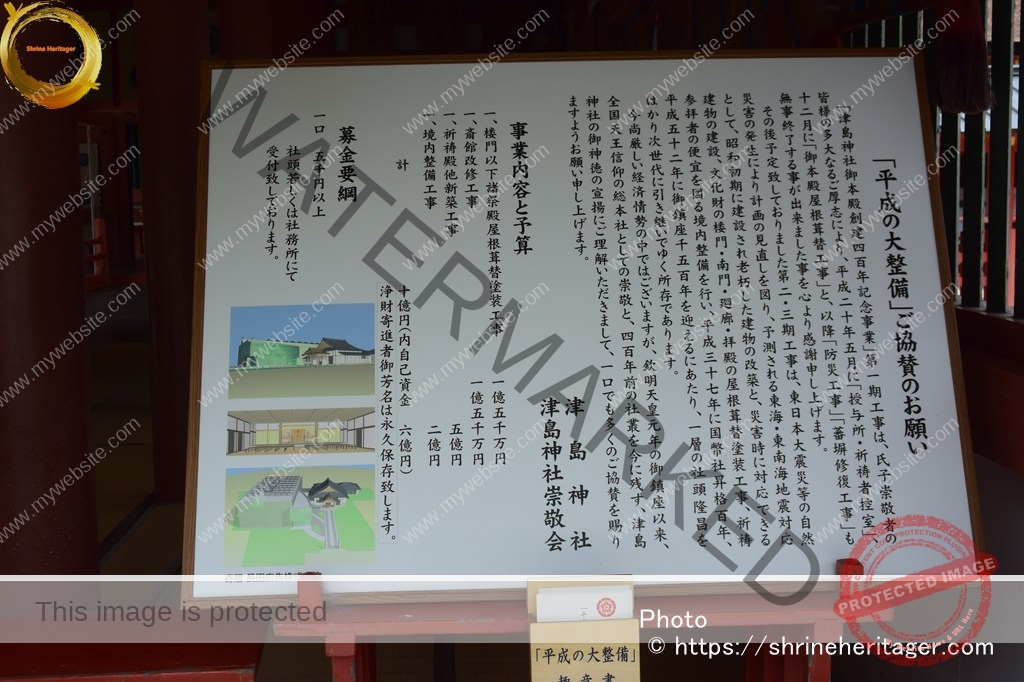 「平成の大整備」ご協賛のお願い
「津島神社御本殿創建四百年記念事業」第一期工事は、氏子崇敬者の
皆様の多大なるご厚志により、平成二十年五月に「授与所・祈祷者控室」、
十二月に「御本殿屋根葺替工事」と、以降「防災工事」「蕃塀修復工事」も
無事終了する事が出来ました事を心より感謝申し上げます。
その後予定致しておりました第二・三期工事は、東日本大震災等の自然
災害の発生により計画の見直しを図り、予測される東海・東南海地震対応
として、昭和初期に建設され老朽した建物の改築と、災害時に対応できる
建物の建設、文化財の楼門・南門・廻廊・拝殿の屋根葺替塗装工事、祈祷
参拝者の便宜を図る境内整備を行い、平成三十七年に国幣社昇格百年、
平成五十二年に御鎮座千五百年を迎えるにあたり、一層の社頭隆昌を
はかり次世代に引き継いでゆく所存であります。
今尚厳しい経済情勢の中ではございますが、欽明天皇元年の御鎮座以来、
全国天王信仰の総本社としての崇敬と、四百年前の社業を今に残す、津島
神社の御神徳の宣揚にご理解いただきまして、一口でも多くのご協賛を賜り
ますようお願い申し上げます。
津島神社
津島神社崇敬会
事業内容と予算
一、楼門以下諸祭殿屋根葺替塗装工事 一億五千万円
一、斎館改修工事 一億五千万円
一、祈祷殿他新築工事 五億円
一、境内整備工事 二億円
計 十億円(内自己資金 六億円)
浄財寄進者御芳名は永久保存致します。
募金要綱
一口 五千円以上
社頭若しくは社務所にて
受付致しております。
「平成の大整備」
趣意書
Shrine Heritager
www.mywebsite.com
WATERMARKED
This image is protected
PROTECTED IMAGE
Photo
© https://shrineheritager.com